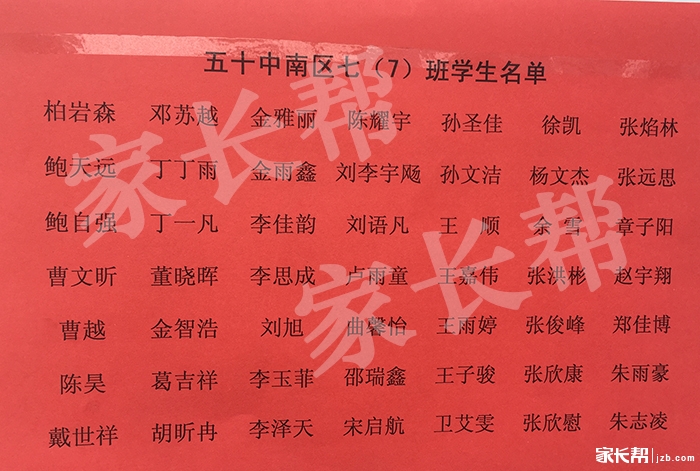 五十中南区七（7）班学生名单
柏岩森 邓苏越 金雅丽 陈耀宇 孙圣佳 徐凯 张焰林
鲍天远 丁丁雨 金雨鑫 刘李宇飏 孙文洁 杨文杰 张远思
鲍自强 丁一凡 李佳韵 刘语凡 王 顺 余 雪 章子阳
曹文昕 董晓晖 李思成 卢雨童 王嘉伟 张洪彬 赵宇翔
曹越 金智浩 刘旭 曲馨怡 王雨婷 张俊峰 郑佳博
陈昊 葛吉祥 李玉菲 邵瑞鑫 王子骏 张欣康 朱雨豪
戴世祥 胡昕冉 李泽天 宋启航 卫艾雯 张欣慰 朱志凌
家长帮
家长帮
家长帮 jzb.com